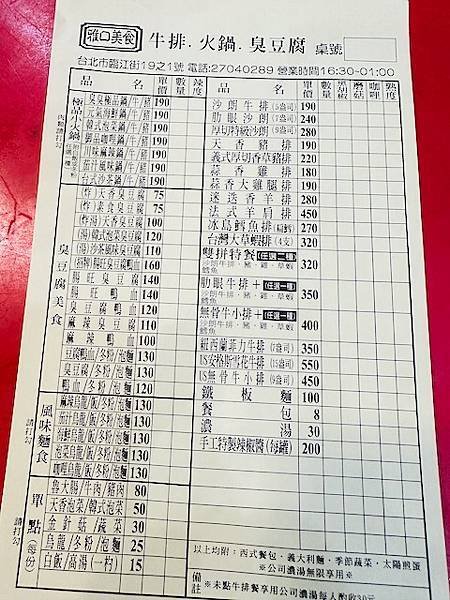 雅口美食 牛排.火鍋.臭豆腐 桌號
台北市臨江街19之1號 電話:27040289 營業時間16:30-01:00
品名 單價 數量 辣度
極品小火鍋
肉類請打勾
臭臭極品鍋/牛/豬 190
元氣海鮮鍋/牛/豬 190
韓式泡菜鍋/牛/豬 190
御品咖哩鍋/牛/豬 190
川味麻辣鍋/牛/豬 190
茄汁風味鍋/牛/豬 190
台式沙茶鍋/牛/豬 190
臭豆腐美食
(炸)天香臭豆腐 75
(炸)素食臭豆腐 75
(炸湯)天香臭豆腐 100
(湯)韓式泡菜臭豆腐 120
(湯)沙茶風味臭豆腐 110
(招牌)腸旺臭豆腐鴨血 160
腸旺臭豆腐 140
腸旺鴨血 140
臭豆腐鴨血 120
麻辣臭豆腐 110
麻辣鴨血 100
豆腐鴨血/冬粉/泡麵 130
臭豆腐/冬粉/泡麵 130
鴨血/冬粉/泡麵 120
風味麵食
請打勾
麻辣烏龍/飯/冬粉/泡麵 130
茄汁烏龍/飯/冬粉/泡麵 130
海鮮烏龍/飯/冬粉/泡麵 130
泡菜烏龍/飯/冬粉/泡麵 130
咖哩烏龍/飯/冬粉/泡麵 130
單點(每份)
請打勾
滷大腸/牛肉/豬肉 80
天香泡菜/韓式泡菜 50
金針菇/蔬菜 30
烏龍/冬粉/泡麵 25
白飯/高湯一杓 15
品名 單價 數量 黑胡椒 蘑菇 咖哩 熟度
沙朗牛排(5盎司) 190
肋眼沙朗(7盎司) 240
厚切特級沙朗(9盎司) 280
天香豬排 190
義式厚切香草豬排 220
蒜香雞排 190
蒜香大雞腿排 190
迷迭香羊排 270
法式羊肩排 450
冰島鱈魚排(扁鱈) 270
台灣大草蝦排(4支) 320
雙拼特餐(任選二種) 320
沙朗牛排、豬、雞、草蝦
鱈魚
肋眼牛排+(任選一種) 350
沙朗牛排、豬、雞、草蝦
鱈魚
無骨牛小排+(任選一種) 400
沙朗牛排、豬、雞、草蝦
鱈魚
紐西蘭菲力牛排(7盎司) 350
US安格斯雪花牛排(15盎司) 550
US無骨牛小排(9盎司) 450
鐵板麵 100
餐包 8
濃湯 30
手工特製辣椒醬(每罐) 200
以上均附:西式餐包.義大利麵.季節蔬菜.太陽煎蛋
※公司濃湯無限享用※
備註 ※未點牛排餐享用公司濃湯每人酌收30元